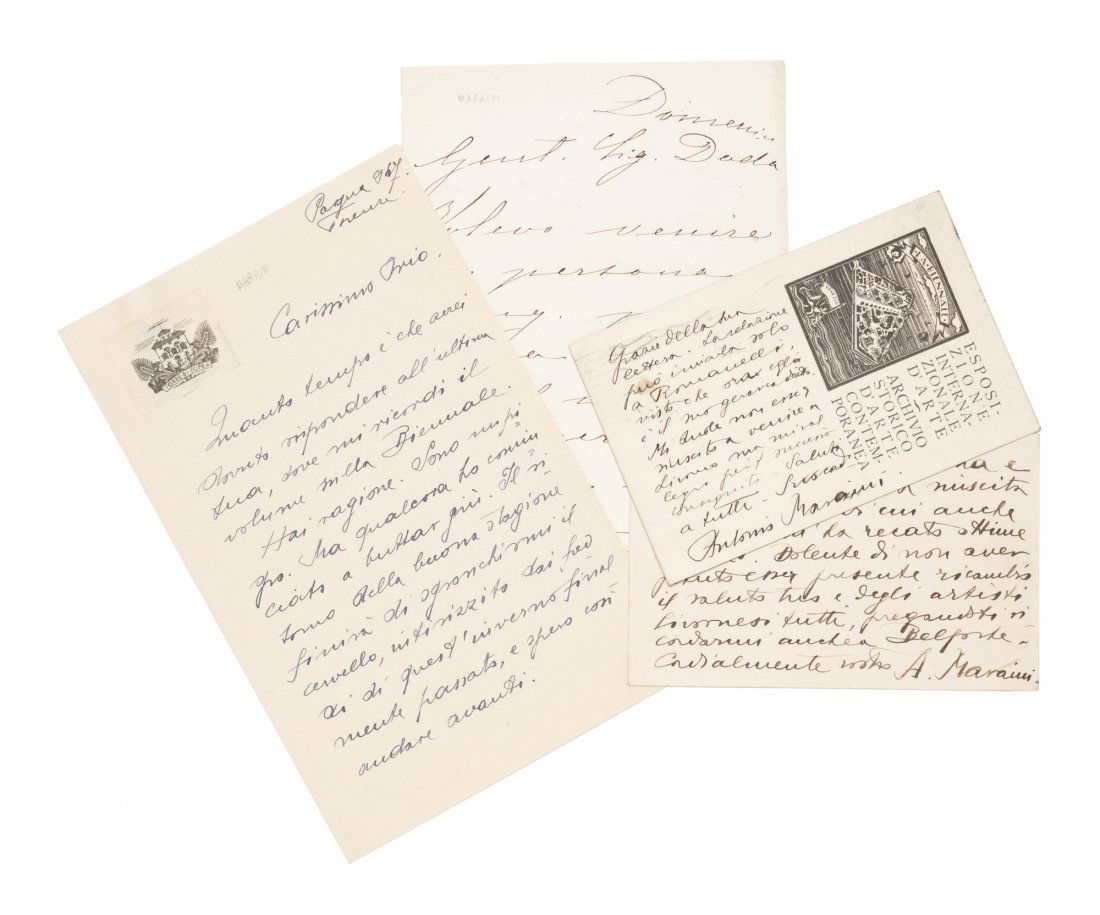 MARAINI
Pasqua 947.
Firenze.
TORRE DI SOPRA
Carissimo Irio.
Quanto tempo è che avrei
dovuto rispondere all'ultima
tua, dove mi ricordi il
volume sulla Biennale.
Hai ragione. Sono un pi
gro. Ma qualcosa ho comin
ciato a buttar giù. Il ri
torno della buona stagione
finirà di sgranchirmi il
cervello, intirizzito dai fred
di di quest'inverno final
mente passato, e spero così
andare avanti.
MARAINI
Domenica
Gent. Sig. Dada
Volevo venire
persona
LA BIENNALE
ESPOSI-
ZIONE
INTERNA-
ZIONALE
D'ARTE
ARCHIVIO
STORICO
D'ARTE
CONTEM-
PORANEA
Grazie della tua
lettera. La relazione
può inviarla solo
a Romanelli,
visto che ora egli
è il
Mi duole non esser
riuscito a venire a
Livorno ma mi ral
legro pel successo
conseguito. Saluti
a tutti.
Antonio Maraini
a e
riuscita
cui anche
ha recato
Dolente di non aver
potuto esser presente ricambio
il saluto tuo e degli artisti
livornesi tutti, pregandoti ri
cordarmi anche a Belforte.
Cordialmente vostro A. Maraini.